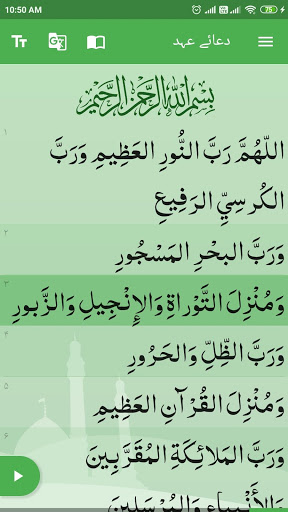 10:50 AM
75
دعائے عہد
بِسْمِ اللهِ الرَّحْمٰنِ الرَّحِيْمِ
۱
اَللّٰهُمَّ رَبَّ النُّورِ العَظِيمِ وَرَبَّ
الكُرسِيِّ الرَفِيعِ
۲
وَرَبَّ البَحْرِ المَسْجُورِ
۳
وَمُنْزِلَ التَّوْرَاةِ وَالإِنْجِيلِ وَالزَّبورِ
۴
وَرَبَّ الظِّلِّ وَالحَرُورِ
۵
وَمُنْزِلَ القُرْآنِ العَظِيمِ
۶
وَرَبَّ المَلائِكَةِ المُقَرَّبِينَ
وَالأَنْبِياءِ وَالمُرْسَلِينَ